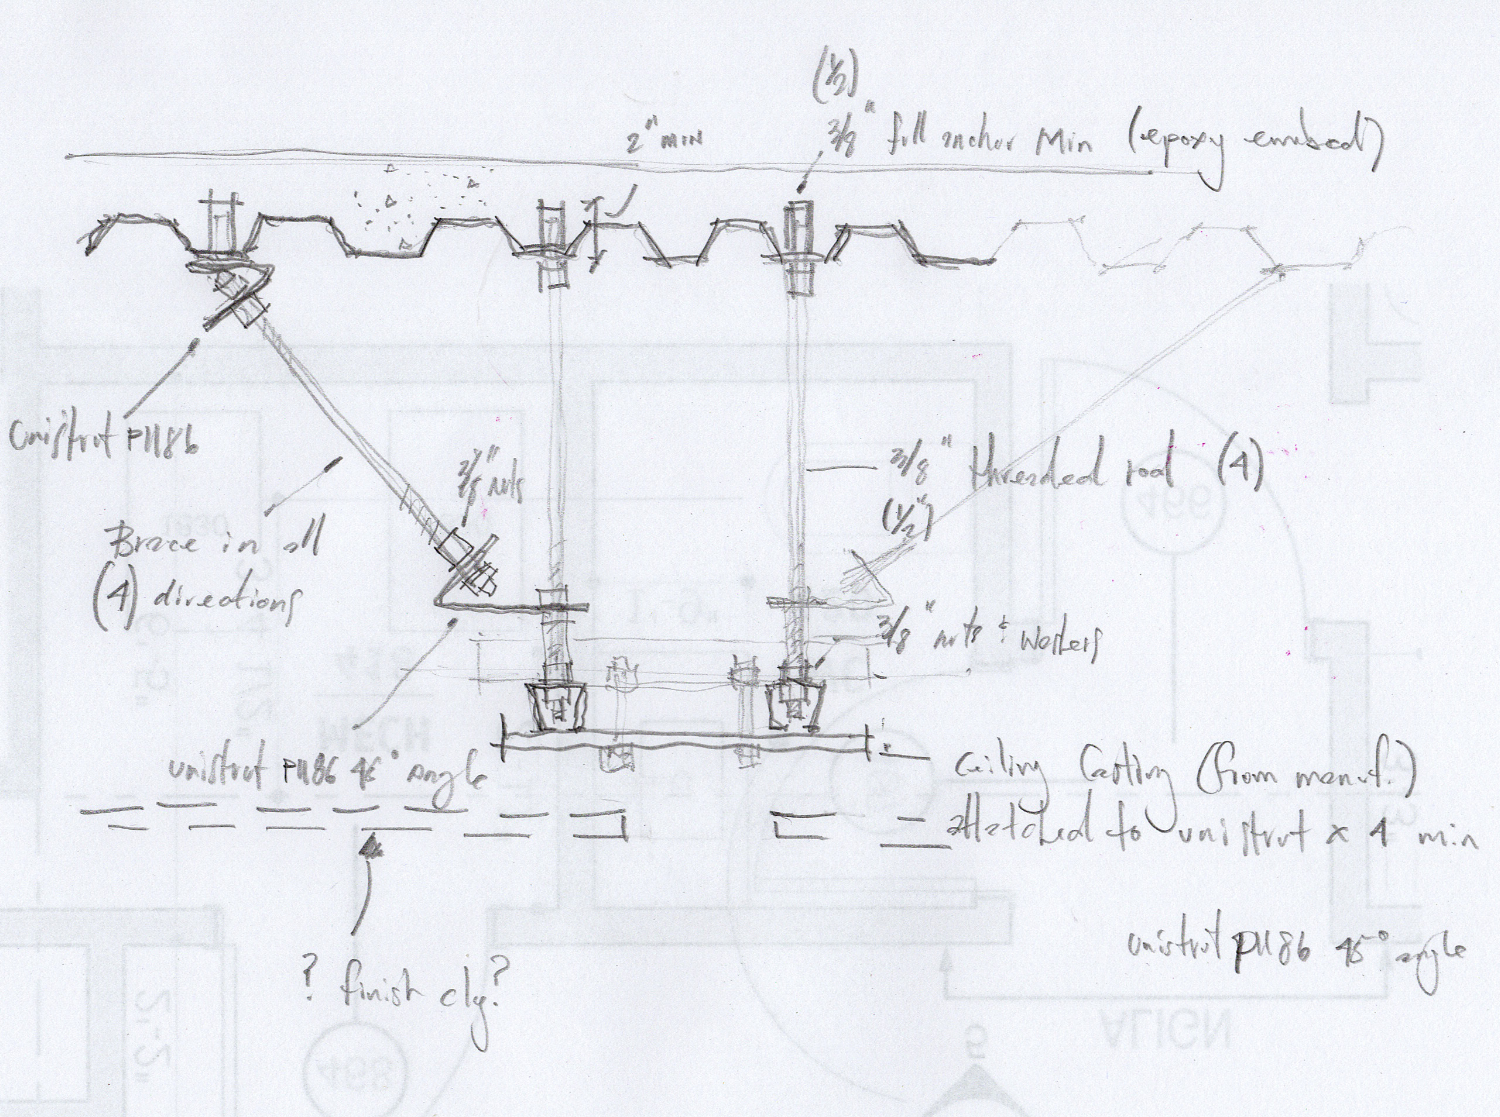 (1/2)
3/8" full anchor Min (epoxy embed)
2" MIN
unistrut P1186
3/8" nuts
3/8" threaded rod (4)
(1/2")
Brace in all
(4) directions
3/8" nuts & washers
unistrut P1186 45° angle
ceiling casting (from manuf.)
attatched to unistrut x 4 min
unistrut P1186 45° angle
? finish clg?
1'-0"
466
MECH
468
2'-2"
ALIGN